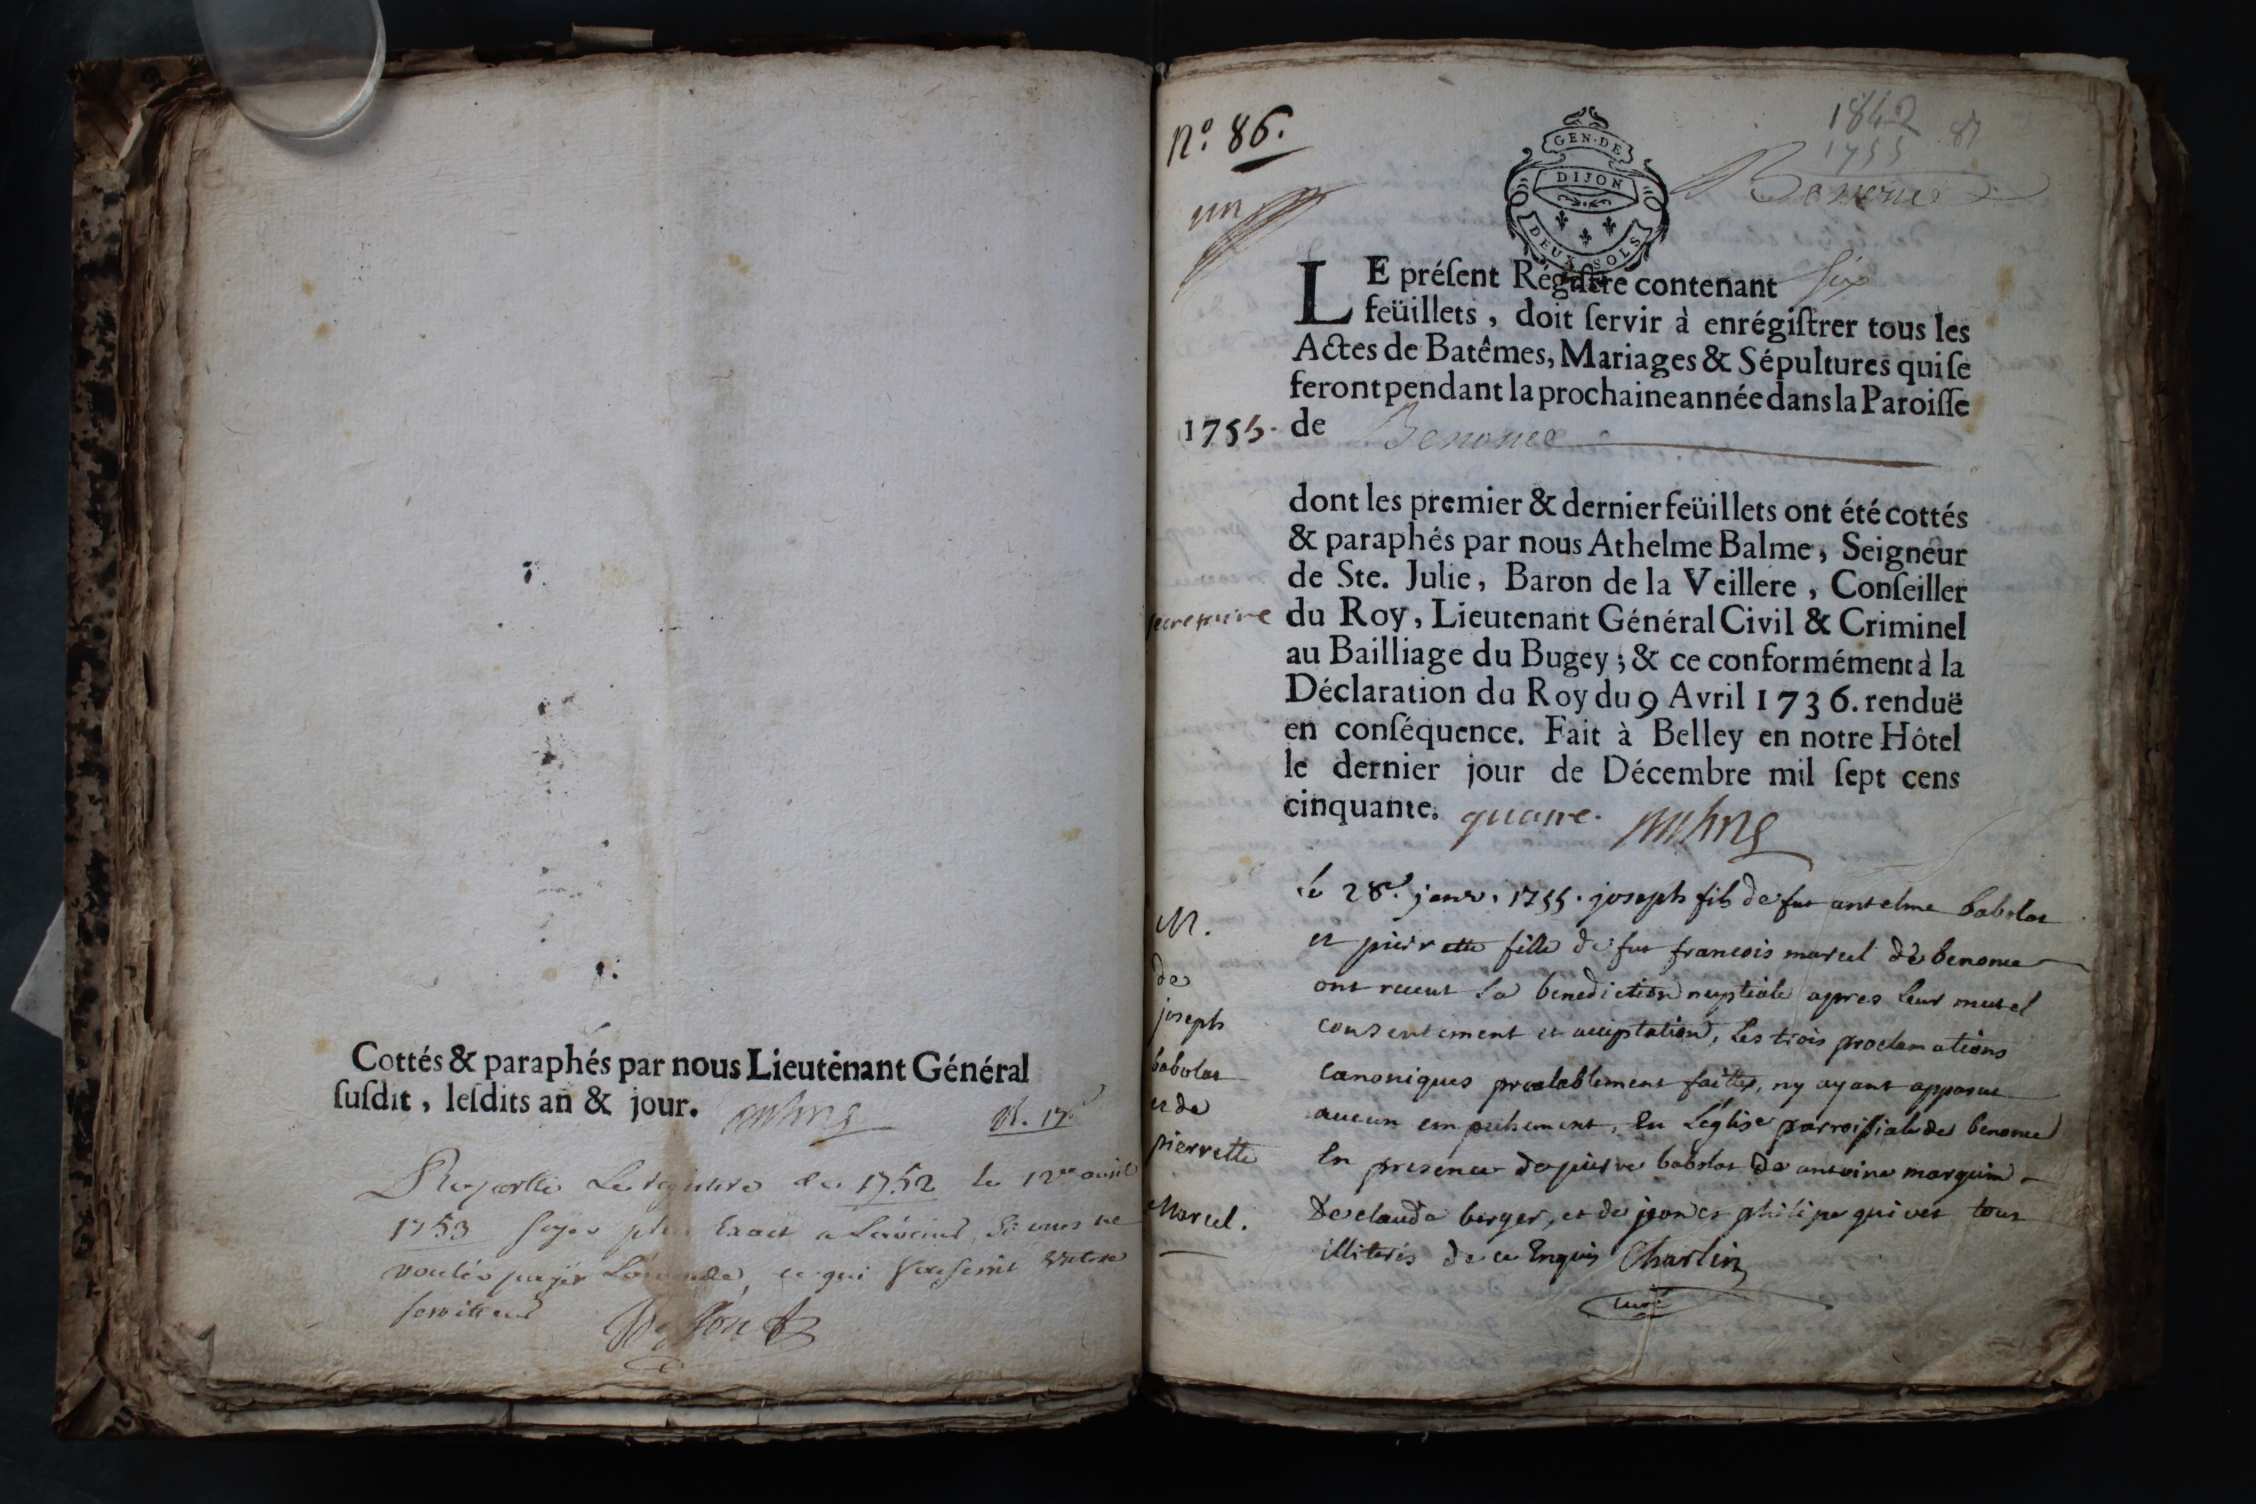 Cottés & paraphés par nous Lieutenant Général
susdit, lesdits an & jour.
le registre de 1752 le 12 avril
1753 soyés plus Exact a Lavenir, Si vous ne
voulés payér Lamende, ce qui
serviteur
N.º 86.
1842
1755
87
un
GEN. DE
DIJON
DEUX SOLS
Benonce
LE présent Registre contenant six
feüillets, doit servir à enrégistrer tous les
Actes de Batêmes, Mariages & Sépultures qui se
feront pendant la prochaine année dans la Paroisse
1755. de Benonce
dont les premier & dernier feüillets ont été cottés
& paraphés par nous Athelme Balme, Seigneur
de Ste. Julie, Baron de la Veillere, Conseiller
secretaire du Roy, Lieutenant Général Civil & Criminel
au Bailliage du Bugey; & ce conformément à la
Déclaration du Roy du 9 Avril 1736. renduë
en conséquence. Fait à Belley en notre Hôtel
le dernier jour de Décembre mil sept cens
cinquante. quatre.
M.
de
joseph
babolat
et de
pierrette
Marcel.
le 28e. janv. 1755. joseph fils de fut antelme babolat
et pierrette fille de fut francois marcel de benonce
ont receut la benediction nuptiale apres leur mutel
consentement et acceptation, Les trois proclamations
canoniques prealablement faittes, ny ayant apparut
aucun empechement, En L'église parroissiale de benonce
En presence de pierre babolat de antoine marquin
De claude berger, et de jean et philipe quivet tous
illiterés de ce Enquis Charlin
curé